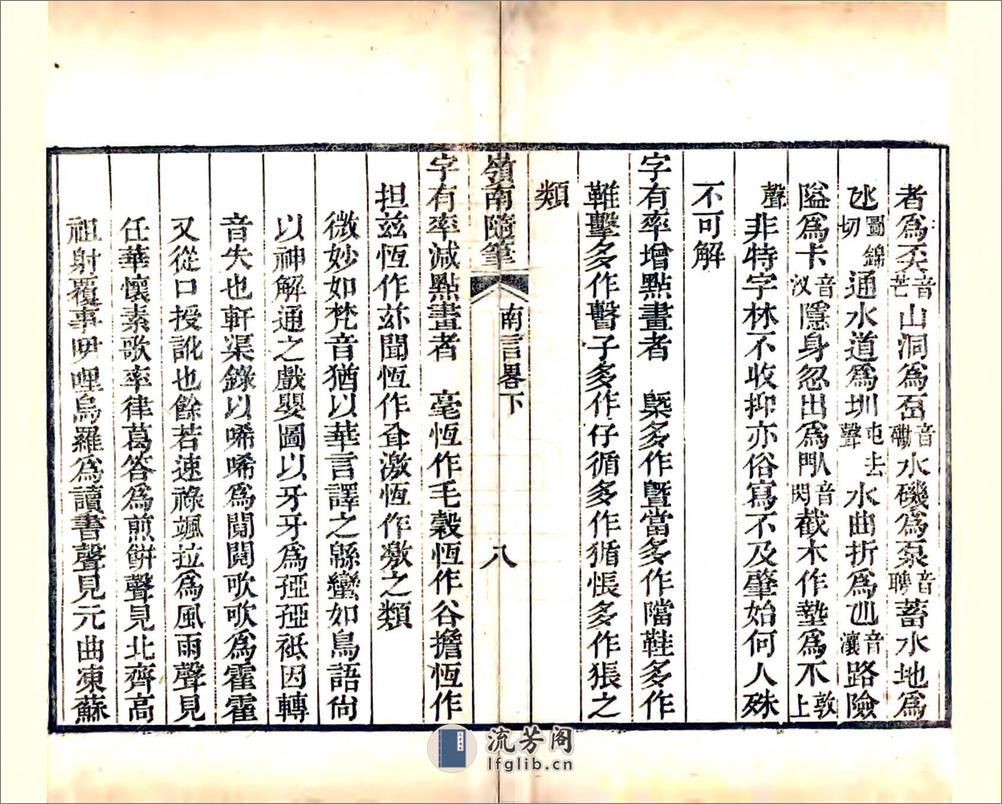 者爲奀音芒山洞爲𥐻音磡水磯爲泵音聘蓄水地爲
氹圖錦切通水道爲圳屯去聲水曲折爲乪音瀼路險
隘爲卡音汊隱身忽出爲閄音閃截木作墊爲不敦上
聲非特字林不收抑亦俗寫不及肇始何人殊
不可解
字有率增點畫者　槩多作曁當多作鐺鞋多作
鞾擊多作毉子多作仔循多作㣫悵多作張之
類
嶺南隨筆　南言畧下　八
字有率減點畫者　毫恆作毛穀恆作谷擔恆作
担茲恆作玆聞恆作耷激恆作敫之類
微妙如梵音猶以華言譯之緜蠻如鳥語尙
以神解通之戲嬰圖以牙牙爲孲孲祇因轉
音失也軒渠錄以唏唏爲閧閧歌歌爲霍霍
又從口授訛也餘若速祿颯拉爲風雨聲見
任華懷素歌率律葛答爲煎餅聲見北齊高
祖射覆事吚哩烏羅爲讀書聲見元曲凍蘇
流芳阁
lfglib.cn